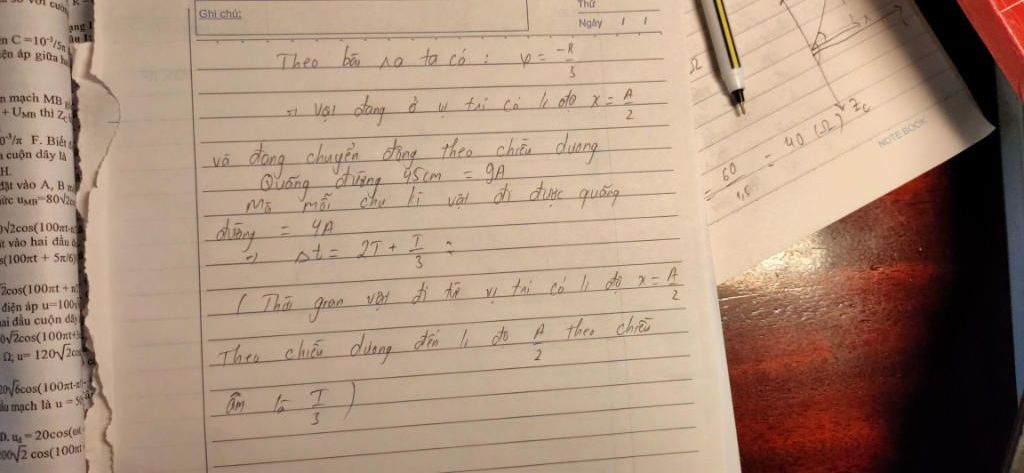 Ghi chú:
Thứ
Ngày / /
Theo bài ra ta có : φ = -π/3
=> Vật đang ở vị trí có li độ x = A/2
và đang chuyển động theo chiều dương
Quãng đường 45cm = 9A
Mà mỗi chu kì vật đi được quãng
đường = 4A
=> Δt = 2T + T/3 :
( Thời gian vật đi từ vị trí có li độ x = A/2
Theo chiều dương đến li độ A/2 theo chiều
âm là T/3 )
= 60/1,5 = 40 (Ω)
Z_C
NOTE BOOK
n C=10⁻³/5π
ện áp giữa
n mạch MB
+ U_MB thì Z_C
0⁻³/π F. Biết
cuộn dây là
H.
đặt vào A, B
ức u_MB=80√2
√2cos(100πt
t vào hai đầu
s(100πt + 5π/6)
2cos(100πt + π
điện áp u=100
ai đầu cuộn dây
0√2cos(100πt+
Ω; u= 120√2cos
20√6cos(100πt-π
u mạch là u = 50
D. u_d = 20cos(ωt
00√2 cos(100πt